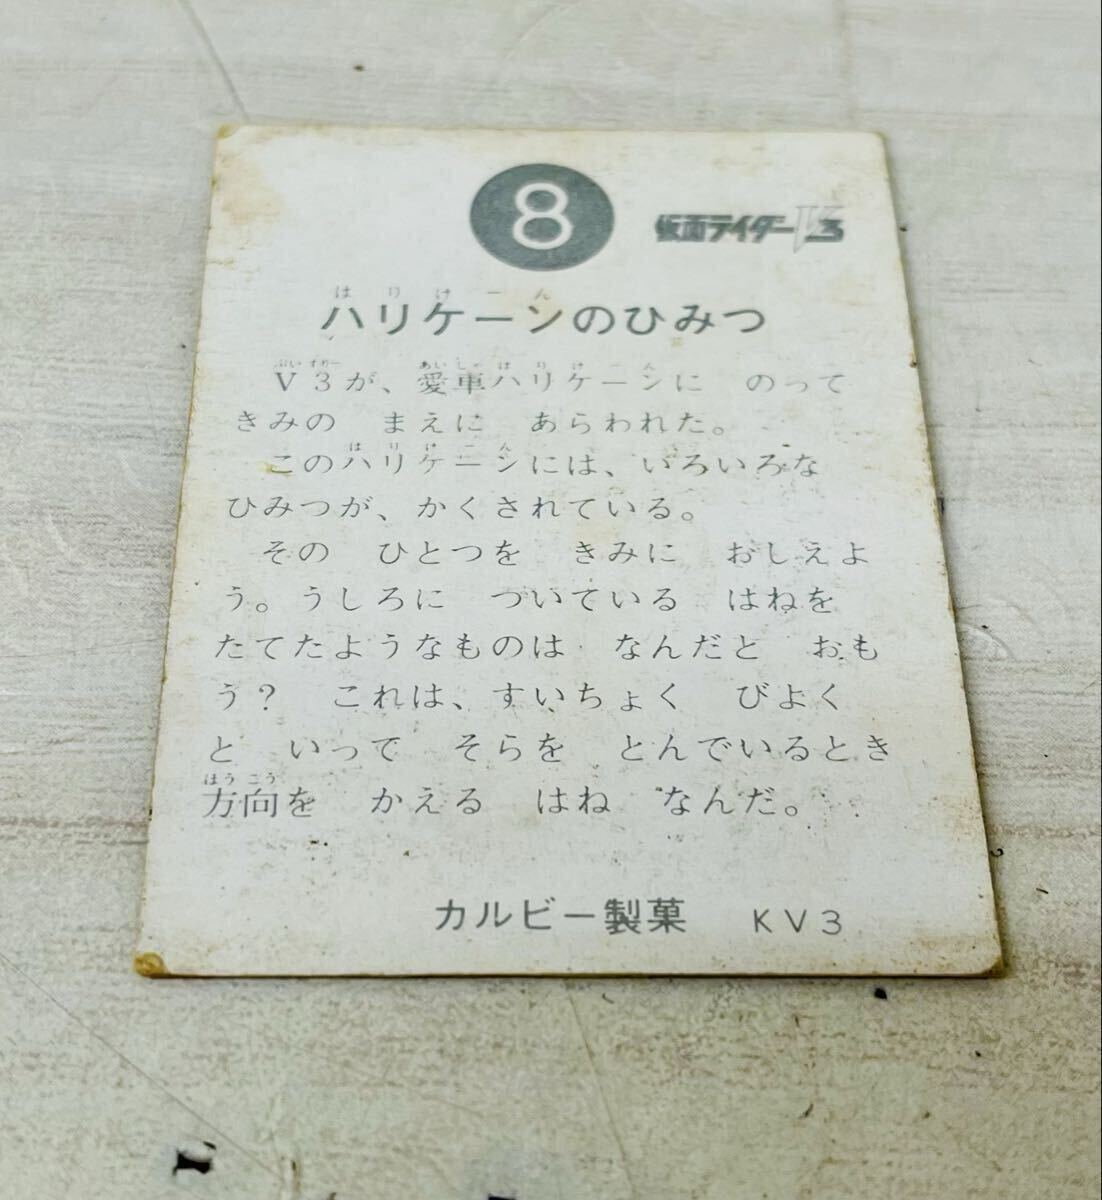 8 仮面ライダーV3
はりけーん
ハリケーンのひみつ
ぶいすりー あいしゃ はりけーん
V3が、愛車ハリケーンに のって
きみの まえに あらわれた。
はりけーん
このハリケーンには、いろいろな
ひみつが、かくされている。
その ひとつを きみに おしえよ
う。うしろに ついている はねを
たてたようなものは なんだと おも
う? これは、すいちょく びよく
と いって そらを とんでいるとき
ほうこう
方向を かえる はね なんだ。
カルビー製菓 KV3